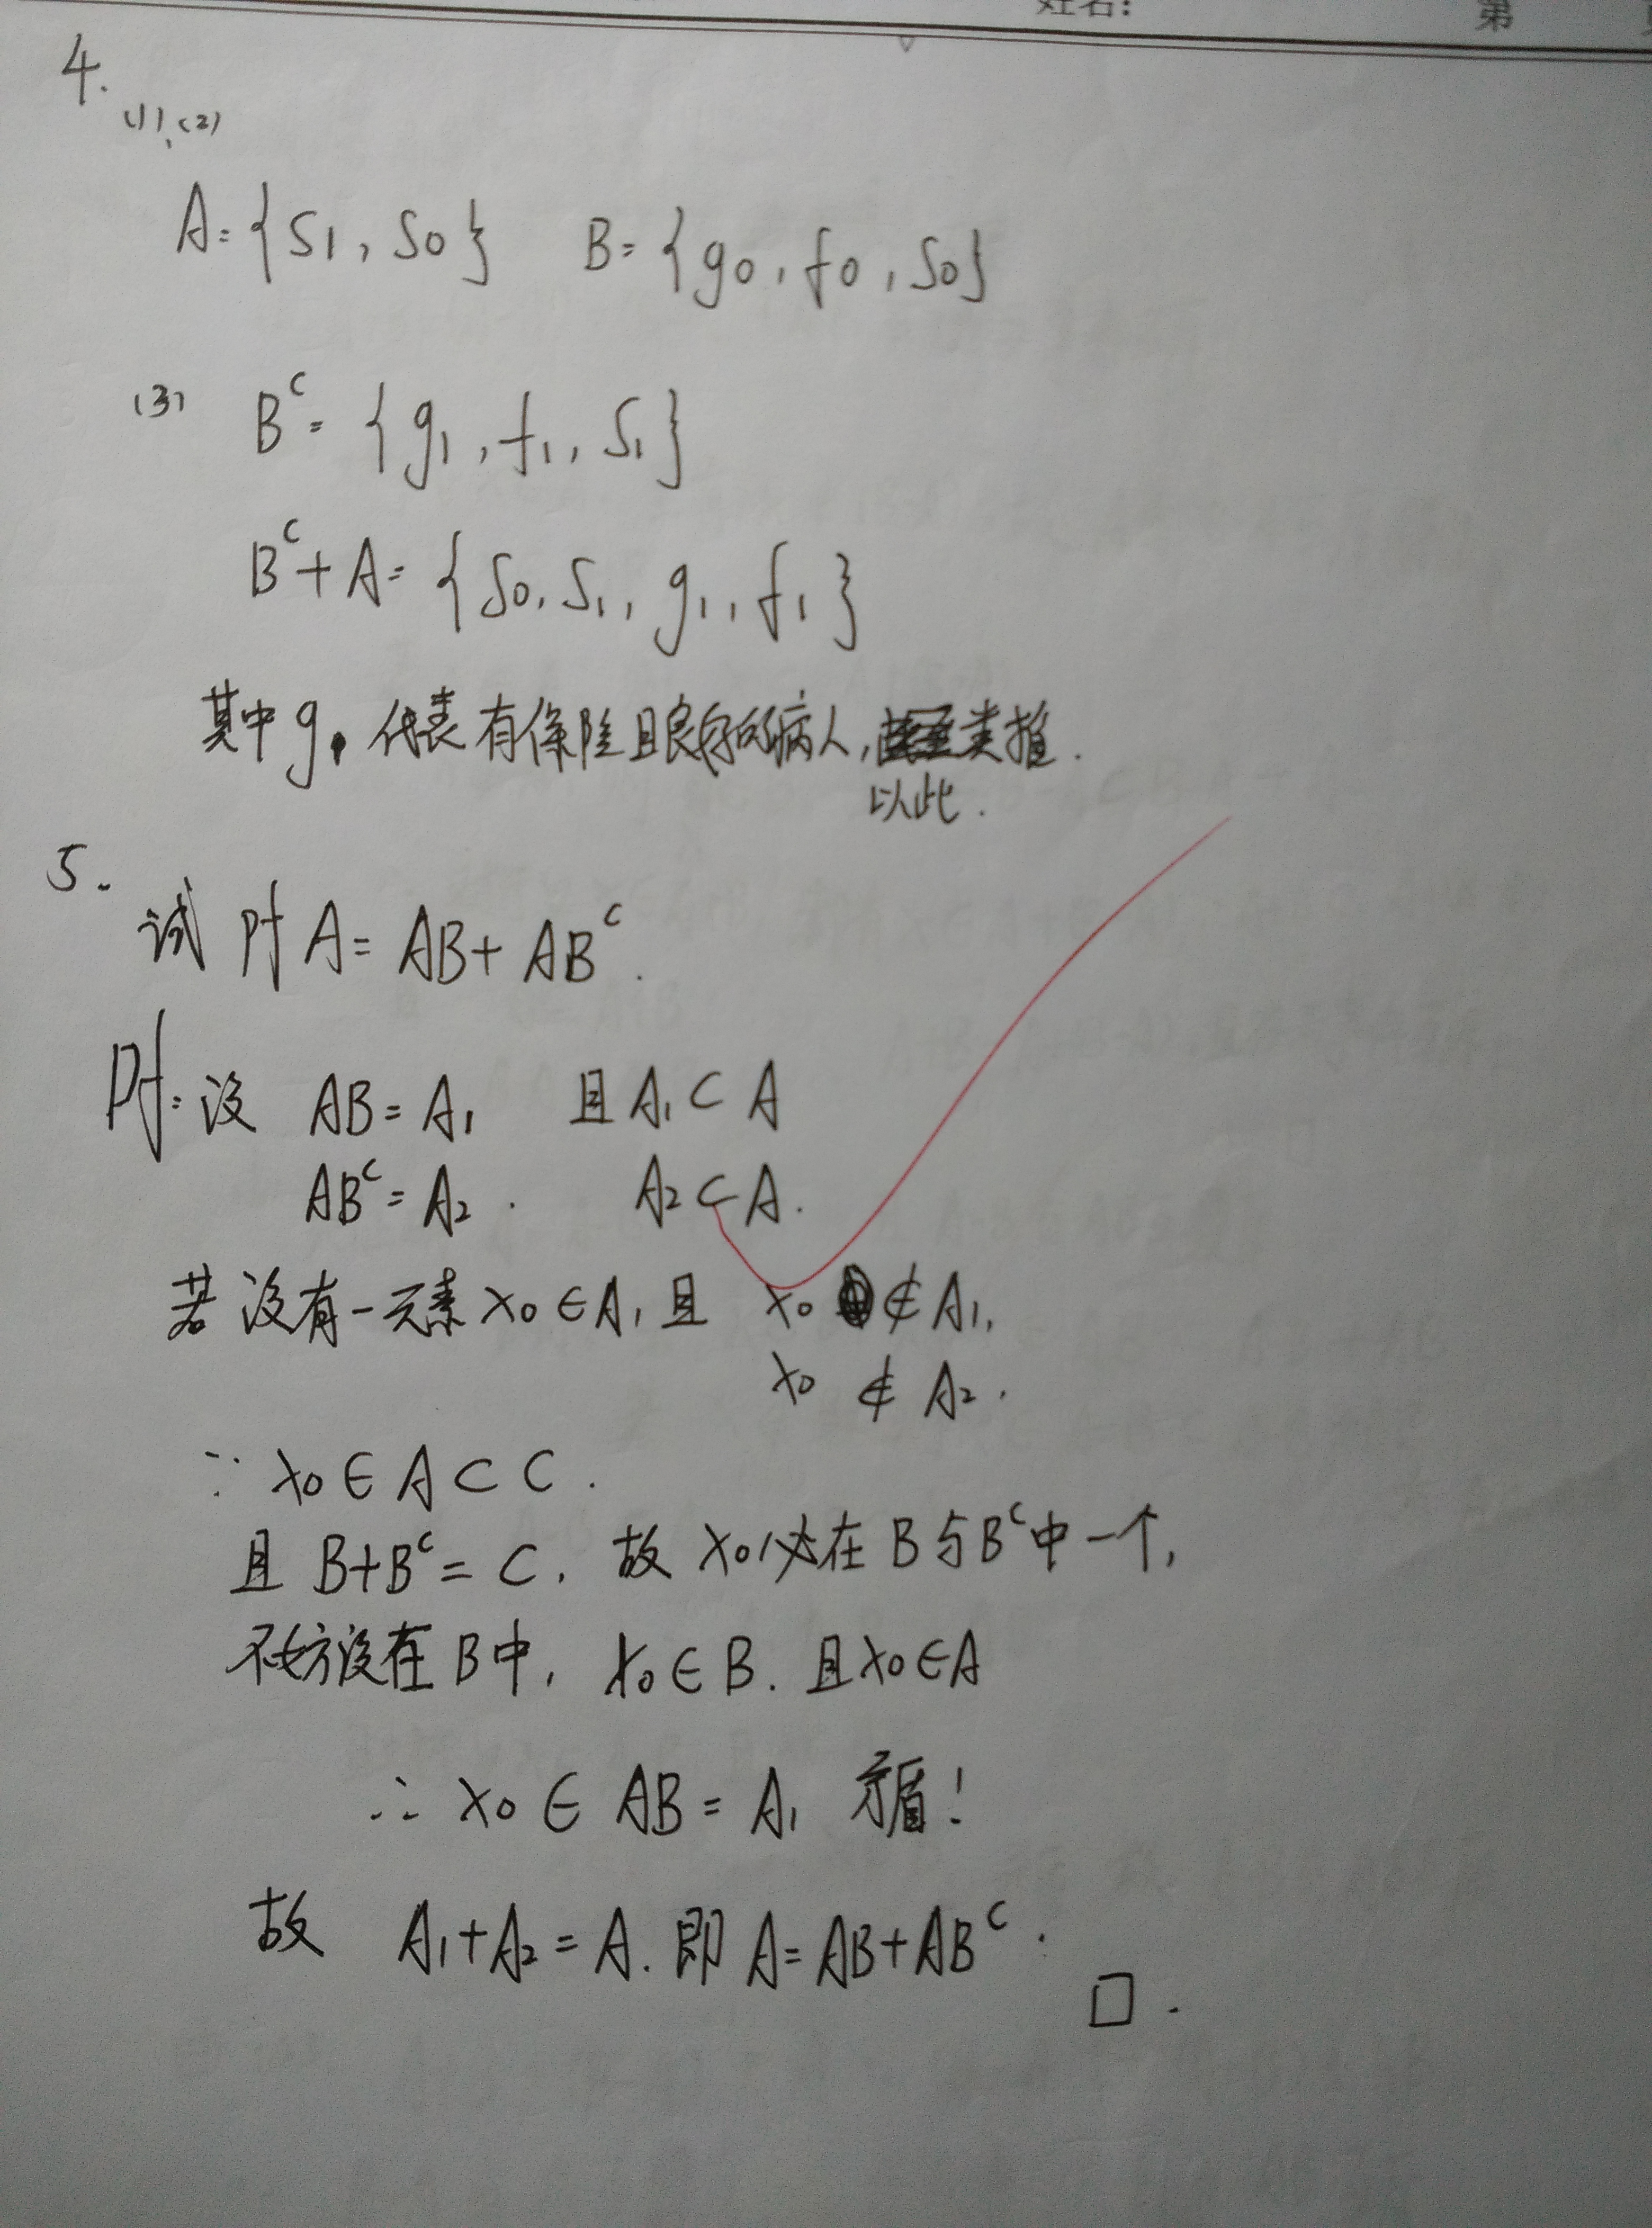 姓名: 第
4.
(1)、(2)
A={S1, S0} B={g0, f0, S0}
(3) B^c={g1, f1, S1}
B^c+A={S0, S1, g1, f1}
其中g1代表有保险且良好的病人, 类推.
以此.
5.
试pf A=AB+AB^c.
pf: 设 AB=A1 且A1⊂A
AB^c=A2. A2⊂A.
若设有一元素x0∈A, 且 x0∉A1,
x0∉A2.
∵ x0∈A⊂C.
且 B+B^c=C, 故x0必在B与B^c中一个,
不妨设在B中, x0∈B. 且x0∈A
∴ x0∈AB=A1 矛盾!
故 A1+A2=A. 即A=AB+AB^c.
□.